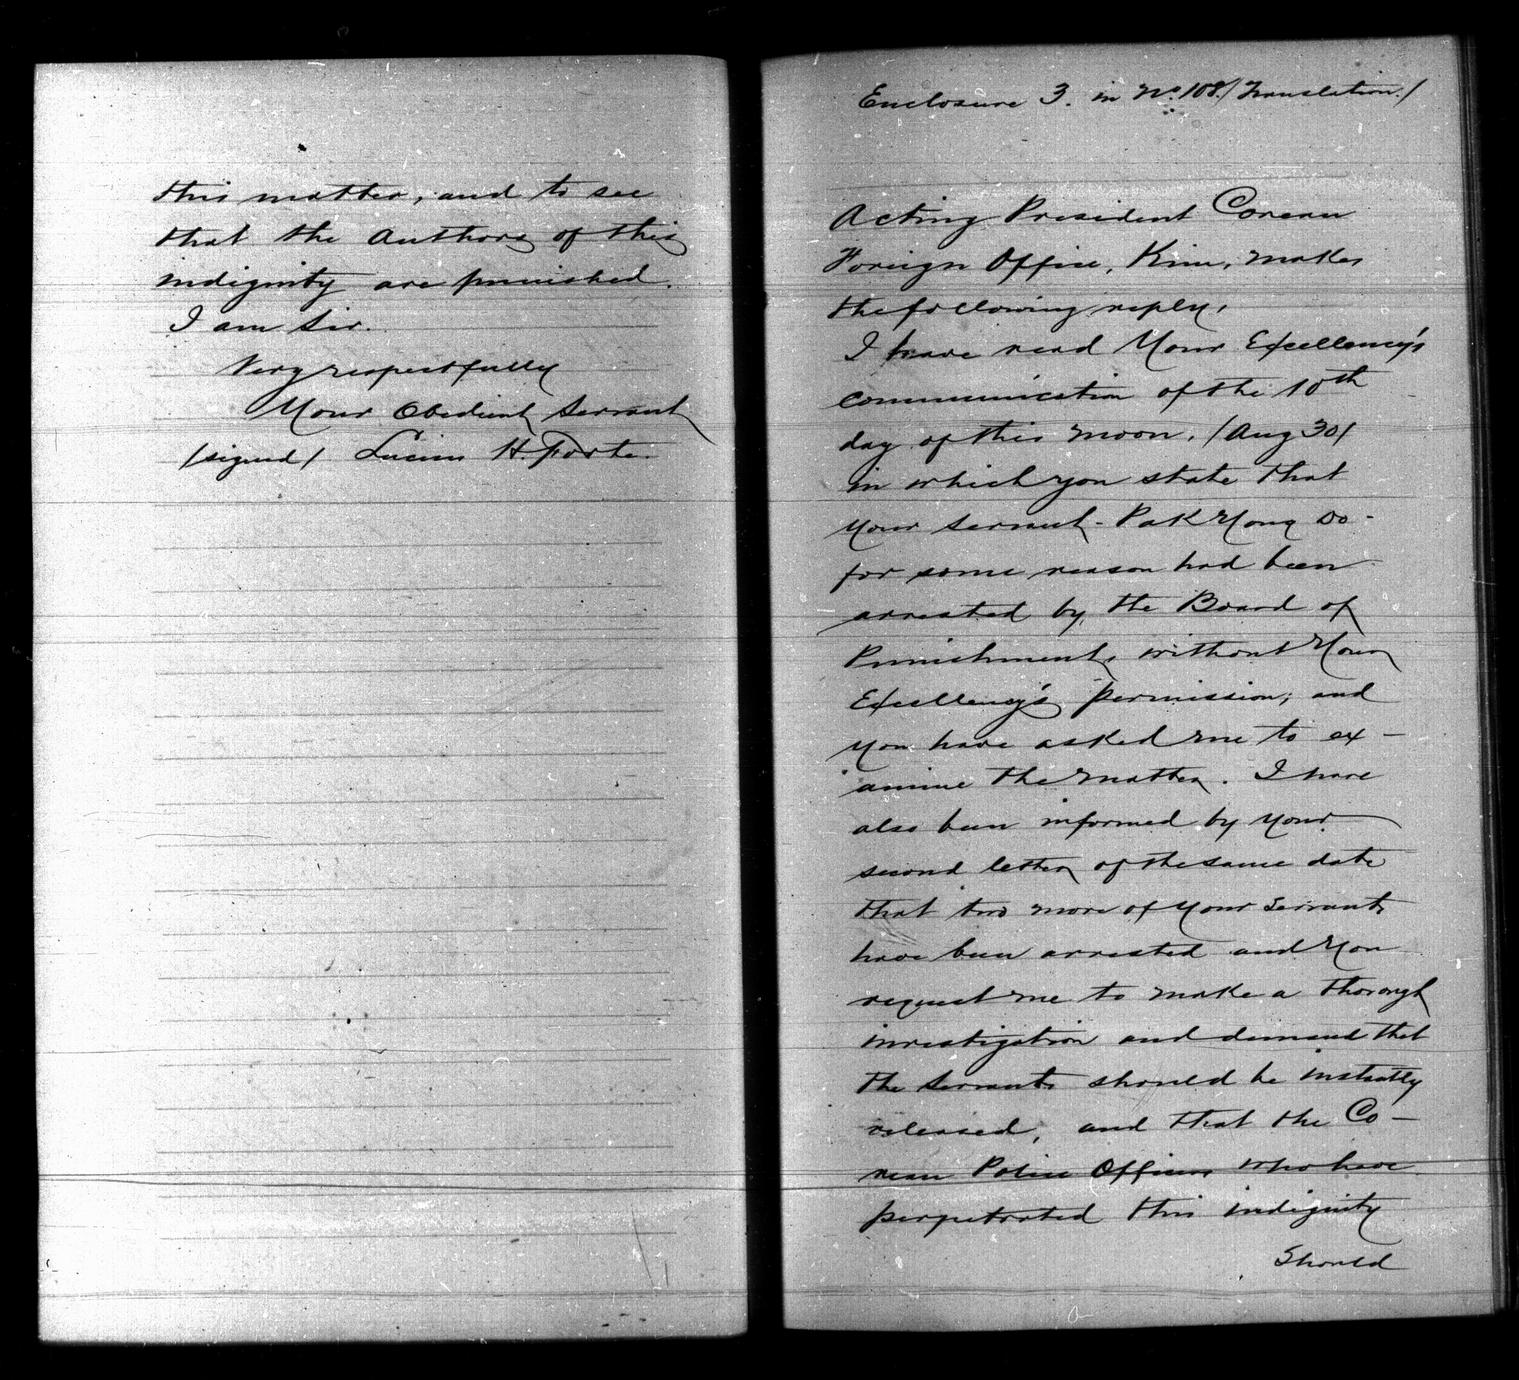 this matter, and to see
that the Authors of this
indignity are punished.
I am Sir.
Very respectfully
Your Obedient Servant
/signed/ Lucien H. Foote.
Enclosure 3. in No. 108. /Translation./
Acting President Corean
Foreign Office, Kim, makes
the following reply,
I have read Your Excellency's
communication of the 10th
day of this moon. /Aug 30/
in which you state that
your servant - Pak Yong
for some reason had been
arrested by the Board of
Punishments without Your
Excellency's permission, and
you have asked me to ex-
amine the matter. I have
also been informed by your
second letter of the same date
that two more of your servants
have been arrested and You
request me to make a thorough
investigation and demand that
the servants should be instantly
released, and that the Co-
rean Police Officers who have
perpetrated this indignity
Should